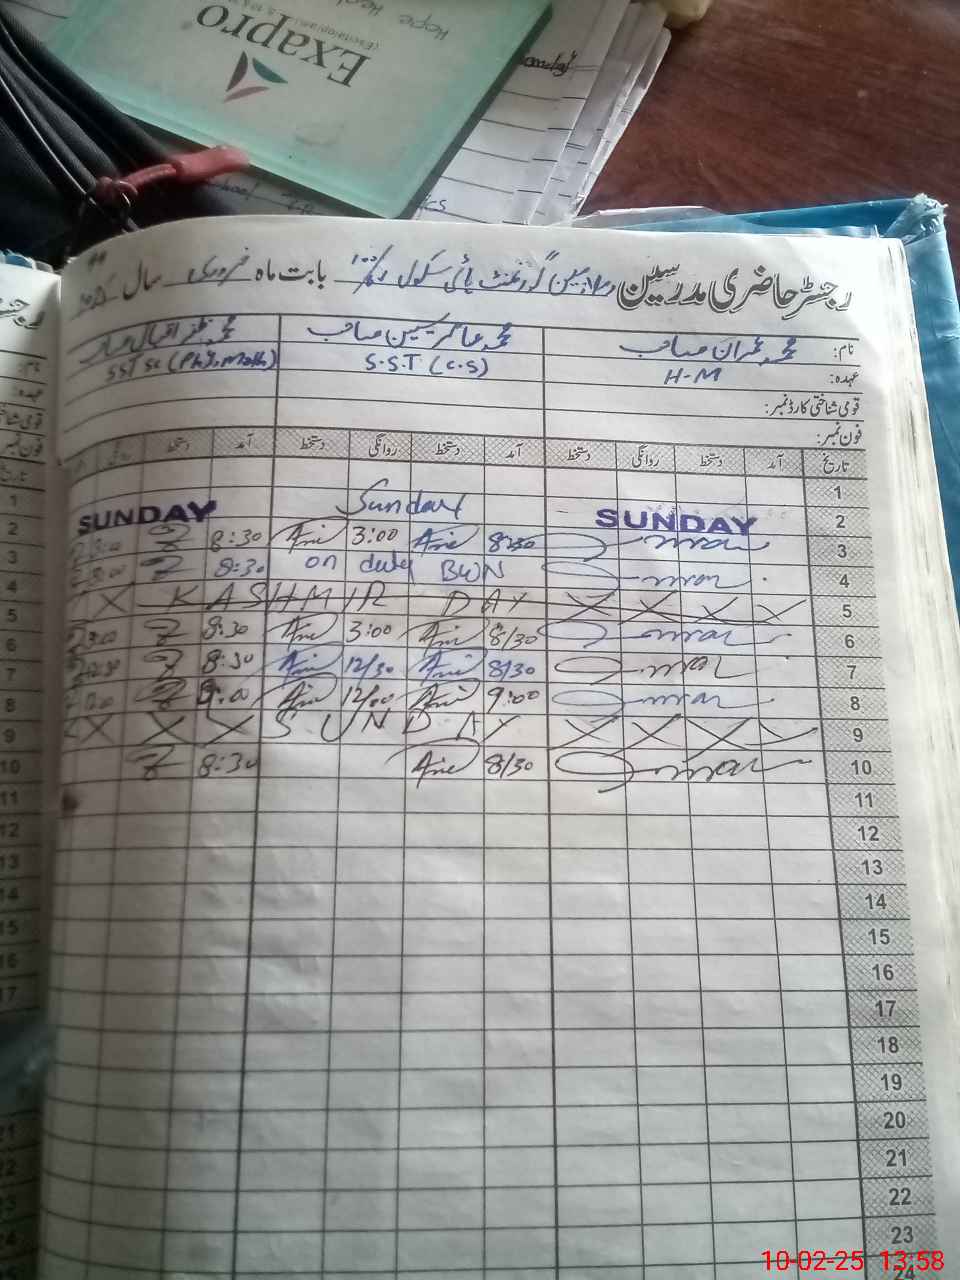 Exapro
(Escitalopram)
Hope Heal
رجسٹر حاضری مدرسین ملازمین گورنمنٹ ہائی سکول بابت ماہ فروری سال
نام: محمد عمران صاحب محمد عامر یسین صاحب محمد ظفر اقبال صاحب
عہدہ: H-M S.S.T (C.S) SST Sc (Phy, Math)
قومی شناختی کارڈ نمبر:
فون نمبر:
تاریخ آمد دستخط روانگی دستخط آمد دستخط روانگی دستخط آمد دستخط روانگی
1
2 SUNDAY Sunday SUNDAY
3 8:30 3:00 8:30 3:00
4 on duty BWN 8:30 3:00
5 X X X X KASHMIR DAY X
6 8/30 3:00 8:30 3:00
7 8/30 12/30 8:30 12:30
8 9:00 12/00 9:00 12:00
9 X X X X SUNDAY X X X
10 8/30 8:30
11
12
13
14
15
16
17
18
19
20
21
22
23
24
10-02-25 13:58